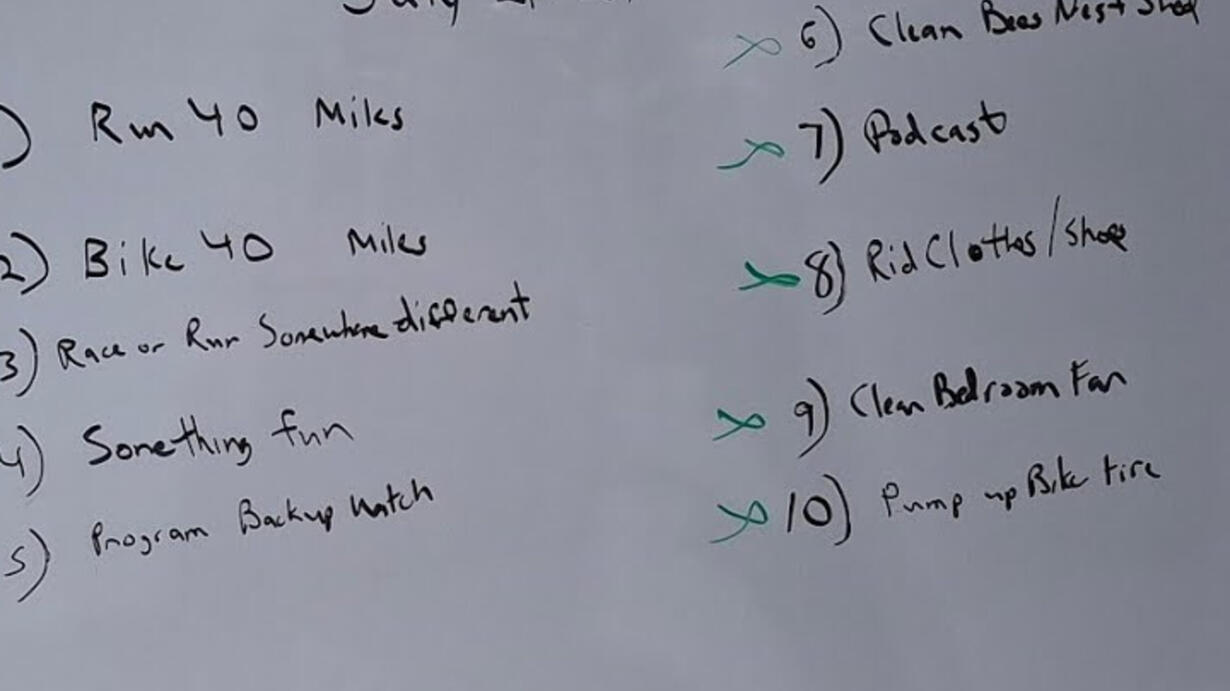 July
1) Run 40 Miles
2) Bike 40 Miles
3) Race or Run Somewhere different
4) Something fun
5) Program Backup Watch
6) Clean Bees Nest Shed
7) Podcast
8) Rid Clothes/Shoes
9) Clean Bedroom Fan
10) Pump up Bike tire